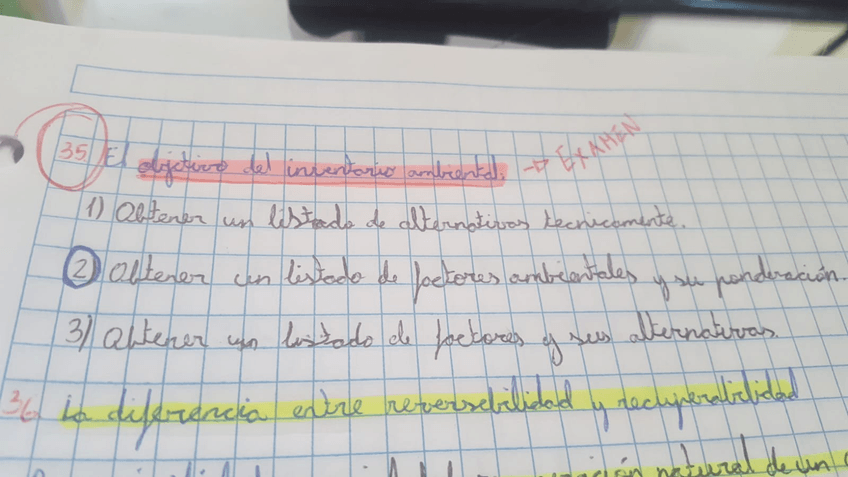 35 El objetivo del inventario ambiental. → EXAMEN
1) Obtener un listado de alternativas tecnicamente.
2) Obtener un listado de factores ambientales y su ponderación.
3) Obtener un listado de factores y sus alternativas.
36 La diferencia entre reversebilidad y recuperabilidad
natural de un